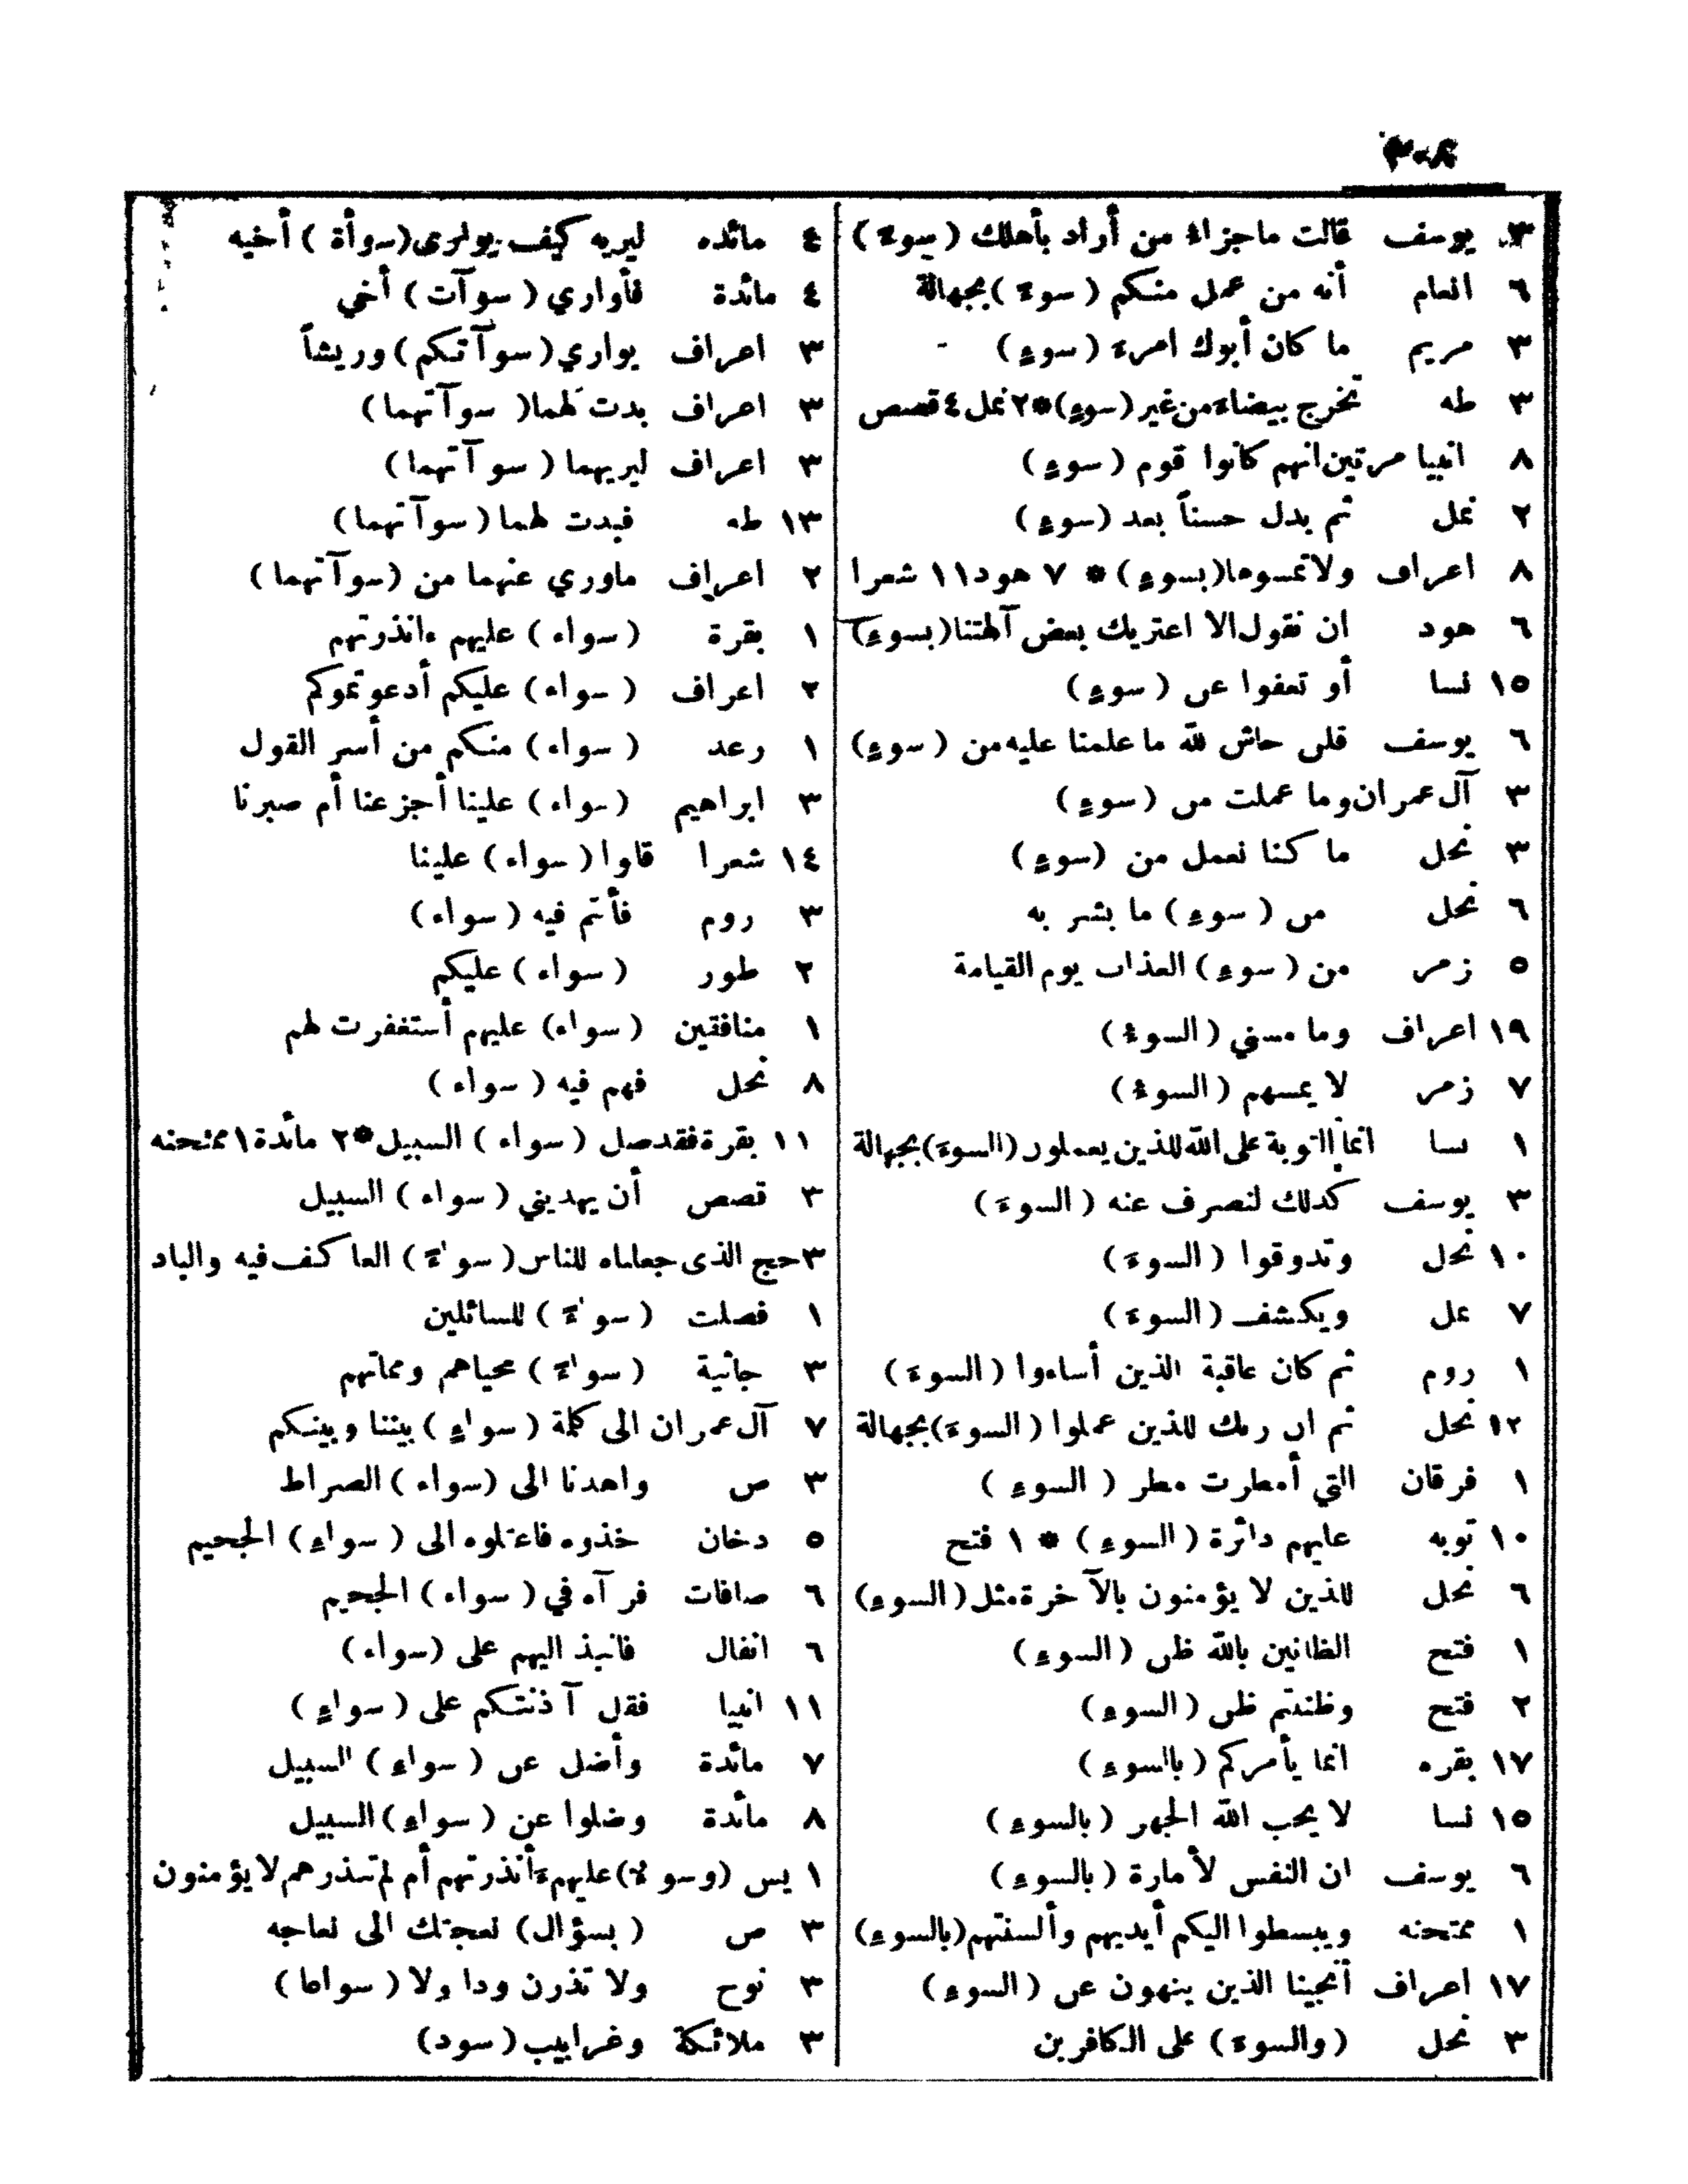 ٣ يوسف قالت ماجزاؤ من أراد بأهلك ( سوءً )
٦ انعام أنه من عمل منكم ( سوءً ) بجهالة
٣ مريم ما كان أبوك امرءَ ( سوءٍ )
٣ طه تخرج بيضاءَ من غير ( سوءٍ ) * ٢ نمل ٤ قصص
٨ انبيا مرتين انهم كانوا قوم ( سوءٍ )
٢ نمل ثم بدل حسناً بعد ( سوءٍ )
٨ اعراف ولا تمسوها ( بسوءٍ ) * ٧ هود ١١ شعرا
٦ هود ان نقول الا اعتريك بعض آلهتنا ( بسوءٍ )
١٥ نسا أو تعفوا عن ( سوءٍ )
٦ يوسف قلن حاش لله ما علمنا عليه من ( سوءٍ )
٣ آل عمران وما عملت من ( سوءٍ )
٣ نحل ما كنا نعمل من ( سوءٍ )
٦ نحل من ( سوءِ ) ما بشر به
٥ زمر من ( سوءِ ) العذاب يوم القيامة
١٩ اعراف وما مسني ( السوءُ )
٧ زمر لا يمسهم ( السوءُ )
١ نسا انما التوبة على الله للذين يعملون ( السوءَ ) بجهالة
٣ يوسف كذلك لنصرف عنه ( السوءَ )
١٠ نحل وتذوقوا ( السوءَ )
٧ نمل ويكشف ( السوءَ )
١ روم ثم كان عاقبة الذين أساءوا ( السوءَ )
١٢ نحل ثم ان ربك للذين عملوا ( السوءَ ) بجهالة
١ فرقان التي أمطرت مطر ( السوءِ )
١٠ توبه عليهم دائرة ( السوءِ ) * ١ فتح
٦ نحل للذين لا يؤمنون بالآخرة مثل ( السوءِ )
١ فتح الظانين بالله ظن ( السوءِ )
٢ فتح وظننتم ظن ( السوءِ )
١٧ بقره انما يأمركم ( بالسوءِ )
١٥ نسا لا يحب الله الجهر ( بالسوءِ )
٦ يوسف ان النفس لأمارة ( بالسوءِ )
١ ممتحنه ويبسطوا اليكم أيديهم وألسنتهم ( بالسوءِ )
١٧ اعراف أنجينا الذين ينهون عن ( السوءِ )
٣ نحل ( والسوءَ ) على الكافرين
٤ مائده ليريه كيف يوارى ( سوأة ) أخيه
٤ مائدة فأواري ( سوآت ) أخي
٣ اعراف يواري ( سوآتكم ) وريشاً
٣ اعراف بدت لهما ( سوآتهما )
٣ اعراف ليريهما ( سوآتهما )
١٣ طه فبدت لهما ( سوآتهما )
٢ اعراف ماوري عنهما من ( سوآتهما )
١ بقرة ( سواء ) عليهم ءانذرتهم
٢ اعراف ( سواء ) عليكم أدعوتموكم
١ رعد ( سواء ) منكم من أسر القول
٣ ابراهيم ( سواء ) علينا أجزعنا أم صبرنا
١٤ شعرا قاوا ( سواء ) علينا
٣ روم فأنتم فيه ( سواء )
٢ طور ( سواء ) عليكم
١ منافقين ( سواء ) عليهم أستغفرت لهم
٨ نحل فهم فيه ( سواء )
١١ بقرة فقد ضل ( سواء ) السبيل * ٢ مائدة ١ ممتحنه
٣ قصص أن يهديني ( سواء ) السبيل
٣ حج الذى جعلناه للناس ( سواءً ) العاكف فيه والباد
١ فصلت ( سواءً ) للسائلين
٣ جاثية ( سواءً ) محياهم ومماتهم
٧ آل عمران الى كلمة ( سواءٍ ) بيننا وبينكم
٣ ص واهدنا الى ( سواء ) الصراط
٥ دخان خذوه فاعتلوه الى ( سواءِ ) الجحيم
٦ صافات فرآه في ( سواء ) الجحيم
٦ انفال فانبذ اليهم على ( سواء )
١١ انبيا فقل آذنتكم على ( سواءٍ )
٧ مائدة وأضل عن ( سواءِ ) السبيل
٨ مائدة وضلوا عن ( سواءِ ) السبيل
١ يس ( وسواءٌ ) عليهم ءَأنذرتهم أم لم تنذرهم لا يؤمنون
٣ ص ( بسؤال ) نعجتك الى نعاجه
٣ نوح ولا تذرن ودا ولا ( سواعا )
٣ ملائكة وغرابيب ( سود )